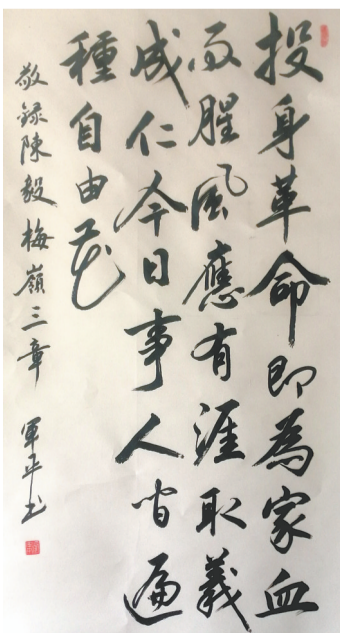 投身革命即為家血
雨腥風應有涯取義
成仁今日事人间遍
種自由花
敬録陳毅梅嶺三章 軍平书